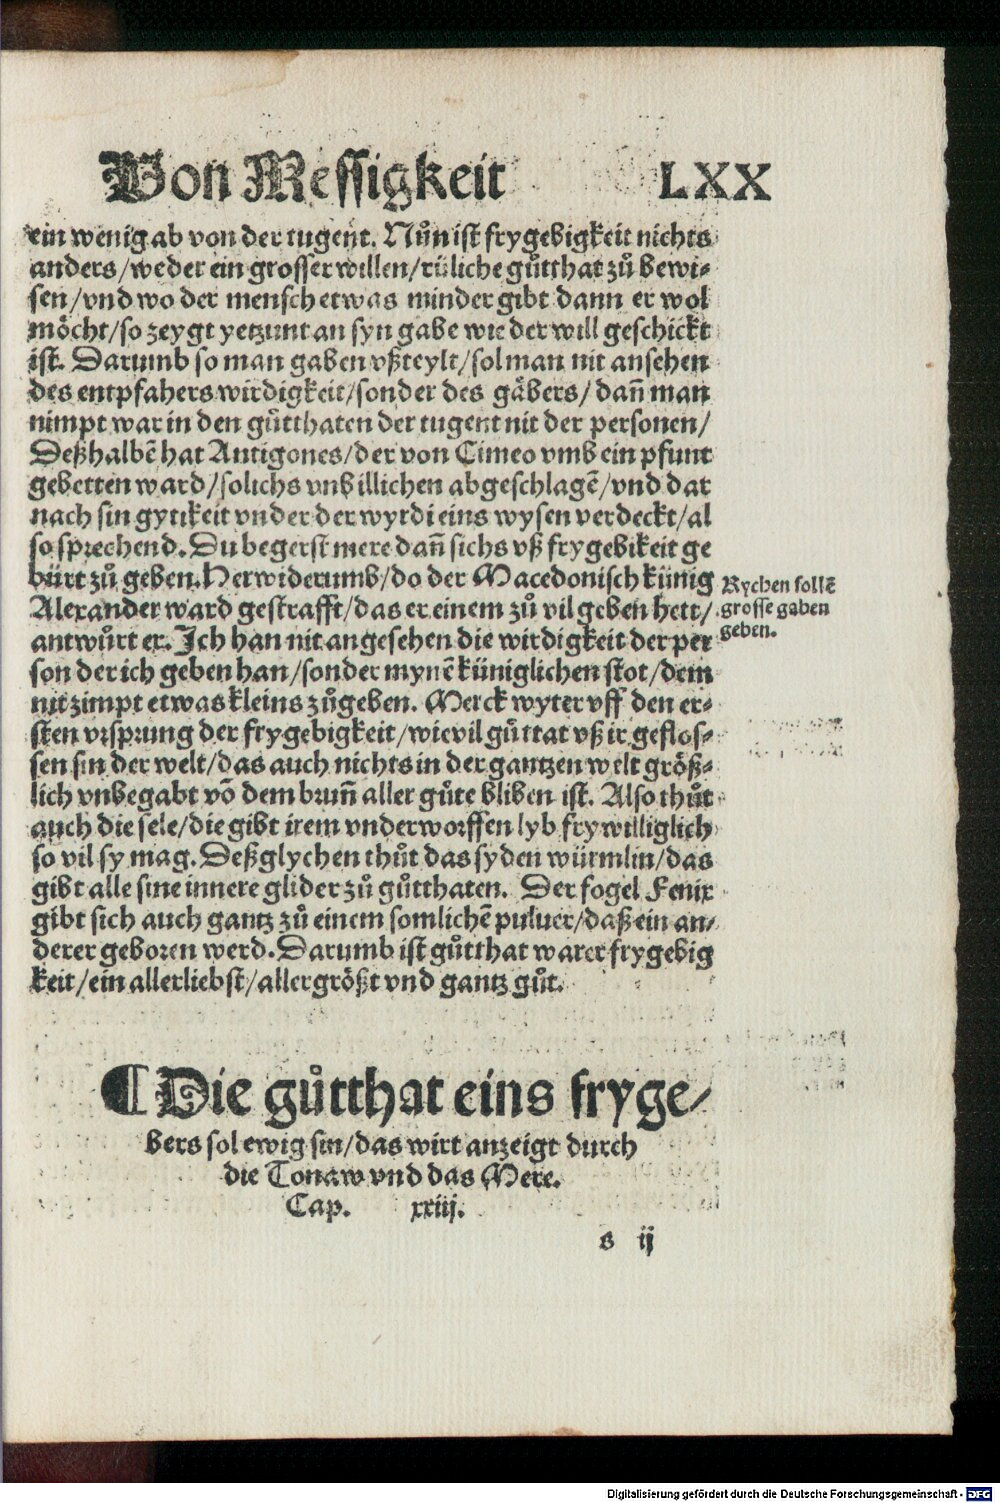 Von Messigkeit LXX
ein wenig ab von der tugent. Nůn ist frygebigkeit nichts
anders/weder ein grosser willen/rüliche gůtthat zů bewi⸗
sen/vnd wo der mensch etwas minder gibt dann er wol
möcht/so zeygt yetzunt an syn gabe wie der will geschickt
ist. Darumb so man gaben vßteylt/sol man nit ansehen
des entpfahers wirdigkeit/sonder des gäbers/dañ man
nimpt war in den gůtthaten der tugent nit der personen/
Deßhalbē hat Antigones/der von Cimeo vmb ein pfunt
gebetten ward/solichs vnbillichen abgeschlagē/vnd dar
nach sin gytikeit vnder der wyrdi eins wysen verdeckt/al
so sprechend. Du begerst mere dañ sichs vß frygebikeit ge
bürt zů geben. Herwiderumb/do der Macedonisch künig
Alexander ward gestrafft/das er einem zů vil geben hett/
antwůrt er. Ich han nit angesehen die wirdigkeit der per
son der ich geben han/sonder mynē küniglichen stot/dem
nit zimpt etwas kleins zůgeben. Merck wyter vff den er⸗
sten vrsprung der frygebigkeit/wievil gůttat vß ir geflos⸗
sen sin der welt/das auch nichts in der gantzen welt größ⸗
lich vnbegabt vō dem brunñ aller gůte bliben ist. Also thůt
auch die sele/die gibt irem vnderworffen lyb frywilliglich
so vil sy mag. Deßglychen thůt das syden würmlin/das
gibt alle sine innere glider zů gůtthaten. Der fogel Fenix
gibt sich auch gantz zů einem somlichē puluer/daß ein an⸗
derer geboren werd. Darumb ist gůtthat warer frygebig
keit/ein allerliebst/allergrößt vnd gantz gůt.
Rychen sollē
grosse gaben
geben.
¶ Die gůtthat eins fryge⸗
bers sol ewig sin/das wirt anzeigt durch
die Tonaw vnd das Mere.
Cap. xxiij.
s ij
Digitalisierung gefördert durch die Deutsche Forschungsgemeinschaft - DFG